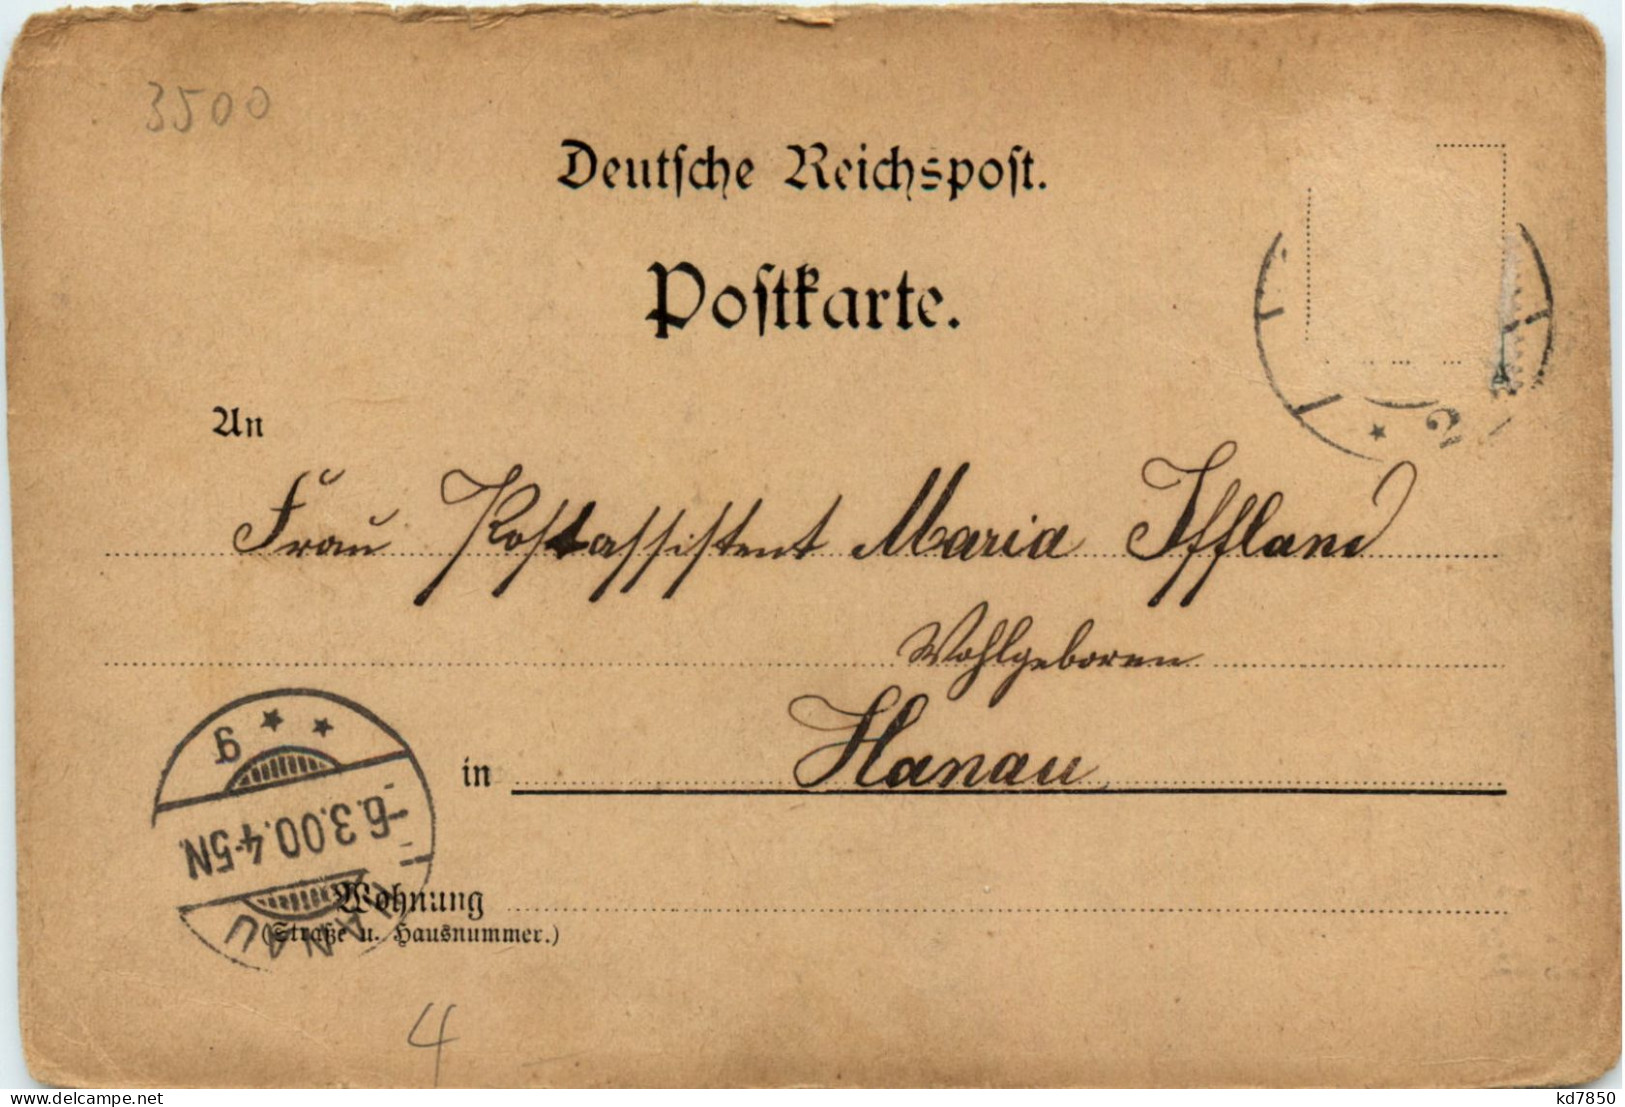 3500
Deutsche Reichspost.
Postkarte.
An
Frau Postassistent Maria Iffland
Wohlgeboren
in Hanau
Wohnung
(Straße u. Hausnummer.)
HANAU
-6.3.00.4-5N.
* * g
4
www.delcampe.net
kd7850